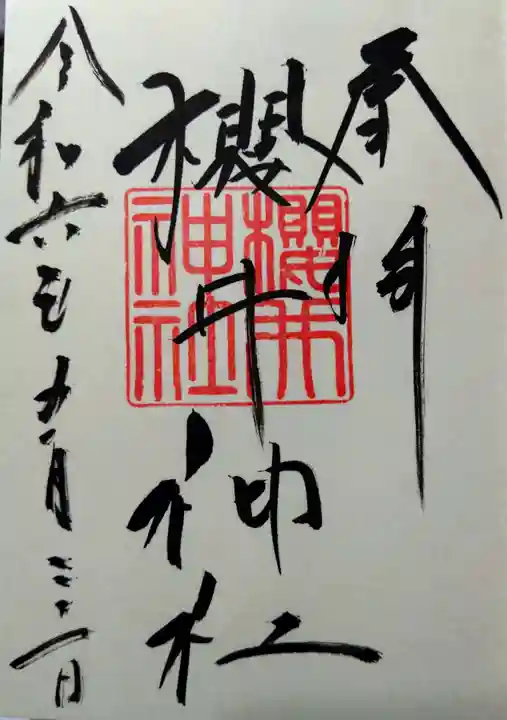 奉拝
櫻井神社
櫻井
神社
令和六年 月 十一日